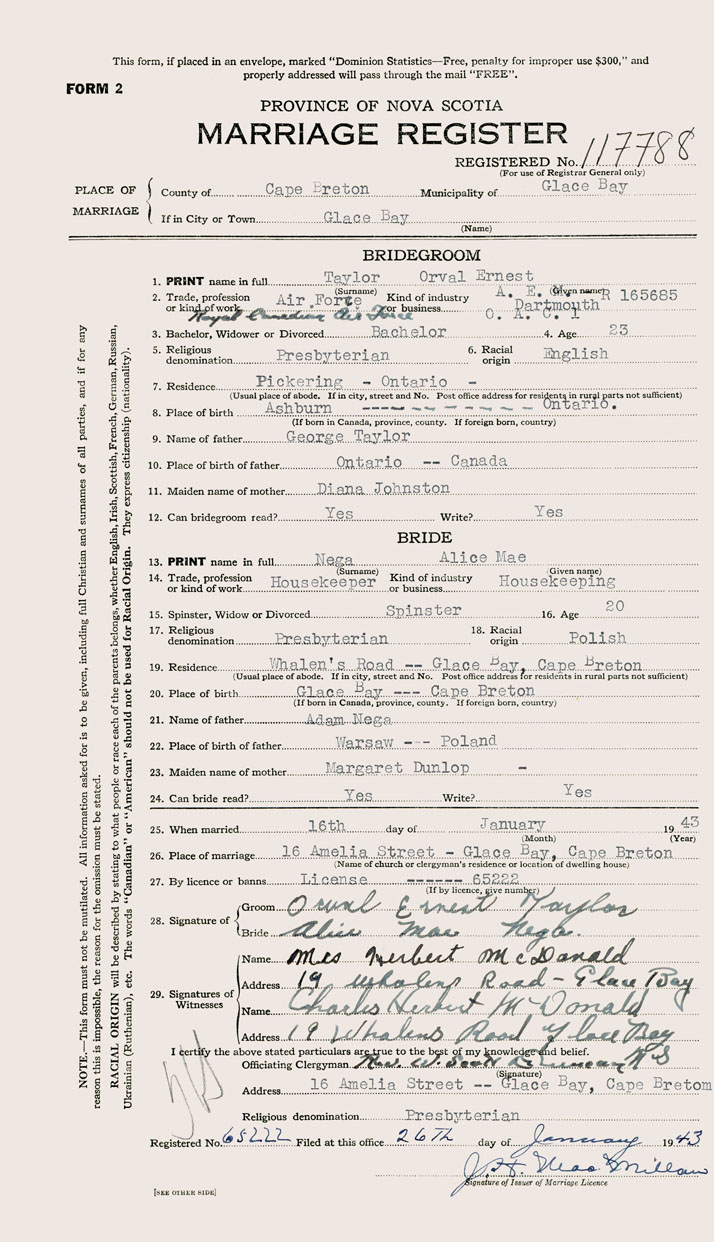 This form, if placed in an envelope, marked “Dominion Statistics—Free, penalty for improper use $300,” and
properly addressed will pass through the mail “FREE”.
FORM 2
PROVINCE OF NOVA SCOTIA
MARRIAGE REGISTER
REGISTERED No. 117788
(For use of Registrar General only)
PLACE OF MARRIAGE
County of Cape Breton Municipality of Glace Bay
If in City or Town Glace Bay
(Name)
BRIDEGROOM
1. PRINT name in full Taylor Orval Ernest
(Surname) (Given name)
2. Trade, profession or kind of work Air Force Kind of industry or business A. E. M. R 165685
Dartmouth
Royal Canadian Air Force O. A. C. 1
3. Bachelor, Widower or Divorced Bachelor 4. Age 23
5. Religious denomination Presbyterian 6. Racial origin English
7. Residence Pickering - Ontario -
(Usual place of abode. If in city, street and No. Post office address for residents in rural parts not sufficient)
8. Place of birth Ashburn ---- -- - - - - - - Ontario.
(If born in Canada, province, county. If foreign born, country)
9. Name of father George Taylor
10. Place of birth of father Ontario -- Canada
11. Maiden name of mother Diana Johnston
12. Can bridegroom read? Yes Write? Yes
BRIDE
13. PRINT name in full Nega Alice Mae
(Surname) (Given name)
14. Trade, profession or kind of work Housekeeper Kind of industry or business Housekeeping
15. Spinster, Widow or Divorced Spinster 16. Age 20
17. Religious denomination Presbyterian 18. Racial origin Polish
19. Residence Whalen's Road -- Glace Bay, Cape Breton
(Usual place of abode. If in city, street and No. Post office address for residents in rural parts not sufficient)
20. Place of birth Glace Bay --- Cape Breton
(If born in Canada, province, county. If foreign born, country)
21. Name of father Adam Nega
22. Place of birth of father Warsaw --- Poland
23. Maiden name of mother Margaret Dunlop -
24. Can bride read? Yes Write? Yes
25. When married 16th day of January 19 43
(Month) (Year)
26. Place of marriage 16 Amelia Street - Glace Bay, Cape Breton
(Name of church or clergyman's residence or location of dwelling house)
27. By licence or banns License ------ 65222
(If by licence, give number)
28. Signature of
Groom Orval Ernest Taylor
Bride Alice Mae Nega.
29. Signatures of Witnesses
Name Mrs Herbert McDonald
Address 19 Whalens Road - Glace Bay
Name Charles Herbert McDonald
Address 19 Whalens Road Glace Bay
I certify the above stated particulars are true to the best of my knowledge and belief.
Officiating Clergyman Rev. W. Scott Duncan
(Signature)
Address 16 Amelia Street -- Glace Bay, Cape Breton
Religious denomination Presbyterian
Registered No. 65222 Filed at this office 26th day of January 19 43
J. H. MacMillan
Signature of Issuer of Marriage Licence
[SEE OTHER SIDE]
NOTE.—This form must not be mutilated. All information asked for is to be given, including full Christian and surnames of all parties, and if for any
reason this is impossible, the reason for the omission must be stated.
RACIAL ORIGIN will be described by stating to what people or race each of the parents belongs, whether English, Irish, Scottish, French, German, Russian,
Ukrainian (Ruthenian), etc. The words “Canadian” or “American” should not be used for Racial Origin. They express citizenship (nationality).